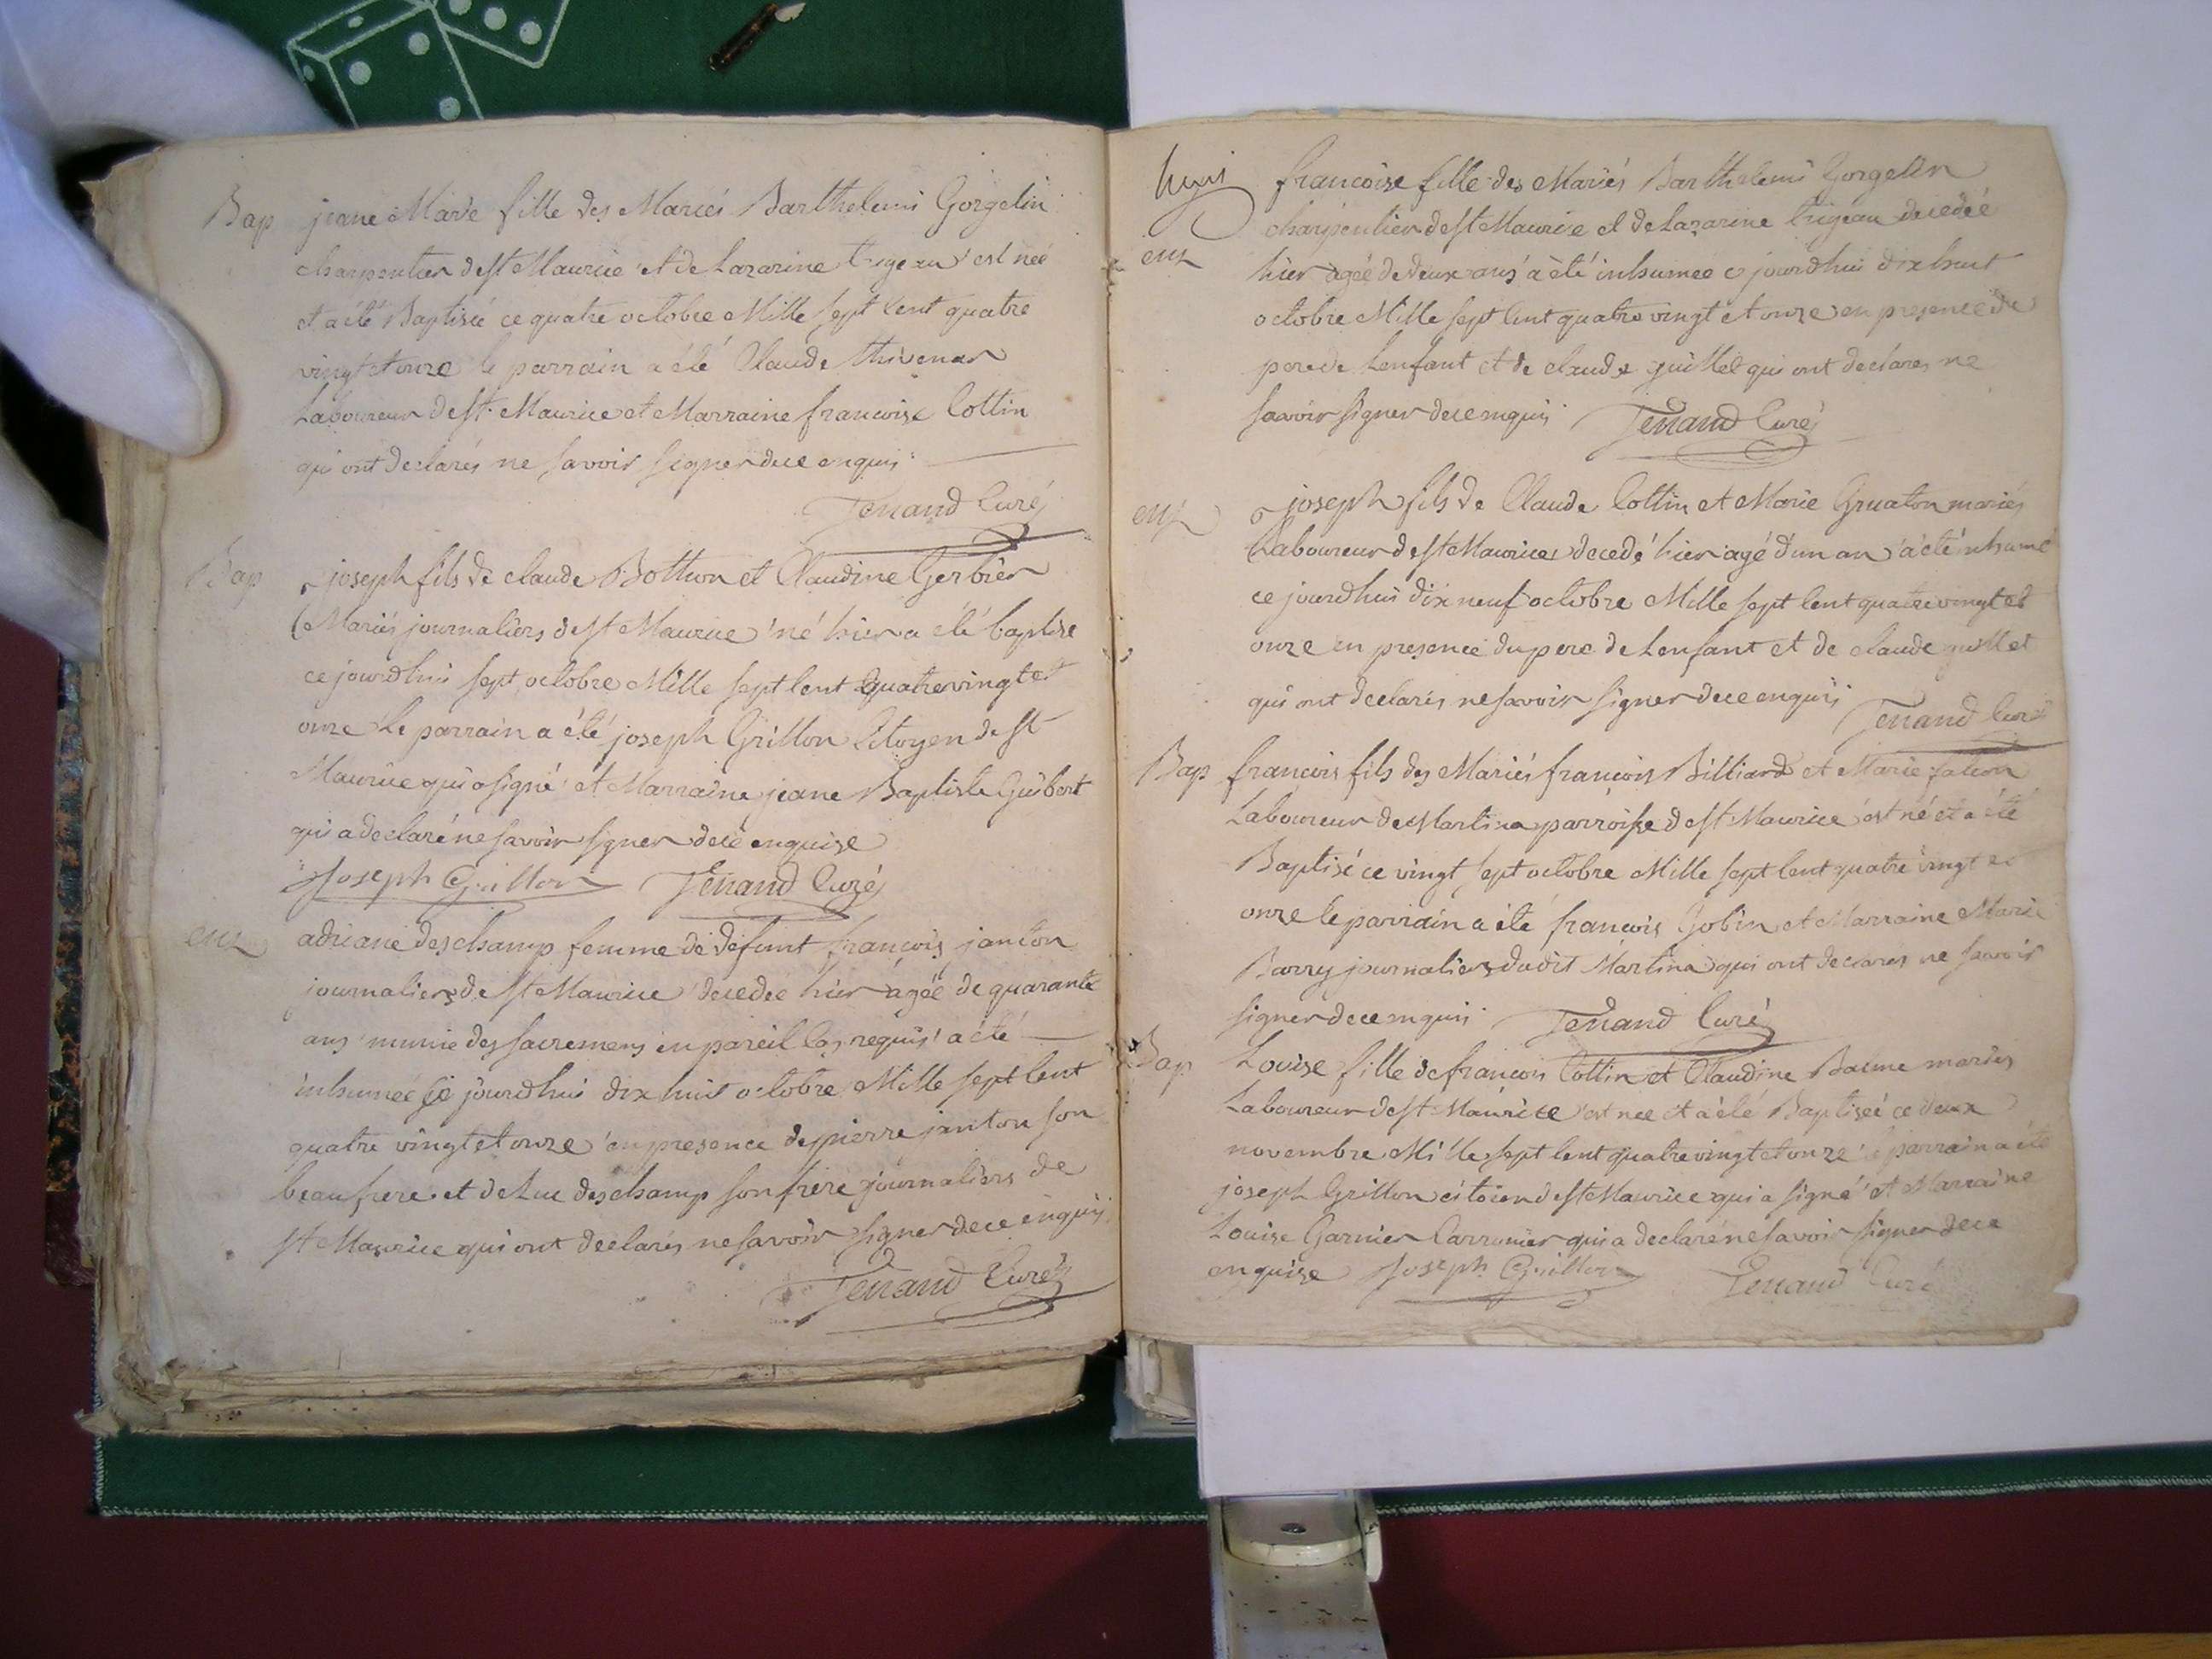 Bap jeane Marie fille des Mariés Barthelemi Gorgelin
charpentier de st Maurice et de Lazarine trigeau est neé
et a été Baptisée ce quatre octobre Mille sept Cent quatre
vingt et onze le parrain a été Claude thivenar
Laboureur de st. Maurice et Marraine francoise Cottin
qui ont declarés ne savoir signer de ce enquis
Tenand Curé
Bap joseph fils de claude Botton et Claudine Gerbier
Mariés journaliers de st Maurice né hier a été baptise
ce jourdhui sept octobre Mille sept Cent quatrevingt et
onze le parrain a été joseph Grillon Citoyen de st
Maurice qui a signé et Marraine jeane Baptiste Guibert
qui a declaré ne savoir signer de ce enquise
Joseph Grillon Tenand Curé
adriane deschamp femme de defunt françois janton
journaliers de st Maurice decedée hier agée de quarante
ans munie des sacremens en pareil Cas requis a été
inhumée ce jourdhui dix huit octobre Mille sept Cent
quatre vingt et onze en presence de pierre janton son
beau frere et de Luc deschamp son frere journaliers de
st Maurice qui ont declarés ne savoir signer de ce enquis
Tenand Curé
francoise fille des Mariés Barthelemi Gorgelin
charpentier de st Maurice et de Lazarine trigeau decedée
hier agée de deux ans a été inhumee ce jourdhui dix huit
octobre Mille sept Cent quatre vingt et onze en presence de
pere de Lenfant et de claude guillet qui ont declarés ne
savoir signer de ce enquis Tenand Curé
joseph fils de Claude Cottin et Marie Gruaton mariés
Laboureur de st Maurice decedé hier agé d'un an a été inhumé
ce jourdhui dix neuf octobre Mille sept Cent quatrevingt et
onze en presence du pere de Lenfant et de claude guillet
qui ont declarés ne savoir signer de ce enquis Tenand Curé
Bap francois fils des Mariés francois Billiard et Marie falcon
Laboureur de Martina parroisse de st Maurice est né et a été
Baptisé ce vingt sept octobre Mille sept Cent quatre vingt et
onze le parrain a été francois Gobin et Marraine Marie
Barry journaliers dudit Martina qui ont declarés ne savoir
signer de ce enquis Tenand Curé
Bap Louise fille de francois Cottin et Claudine Bacme mariés
Laboureur de st Maurice est neé et a été Baptiseé ce deux
novembre Mille sept Cent quatrevingt et onze le parrain a été
joseph Grillon citoien de st Maurice qui a signé et Marraine
Louise Garnier Carronier qui a declaré ne savoir signer de ce
enquise Joseph Grillon Tenand Curé